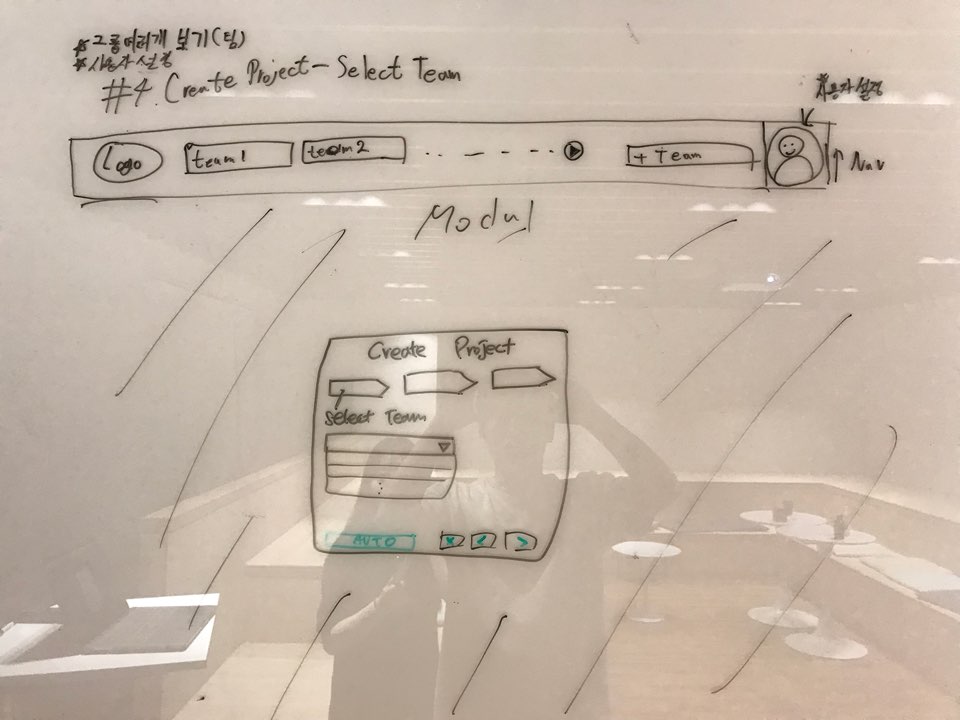 * 그룹 여러개 보기(팀)
* 사용자 설정
#4. Create Project - Select Team
사용자 설정
Logo team1 team2 + Team ↑ Nav
Modul
Create Project
Select Team
AUTO x < >